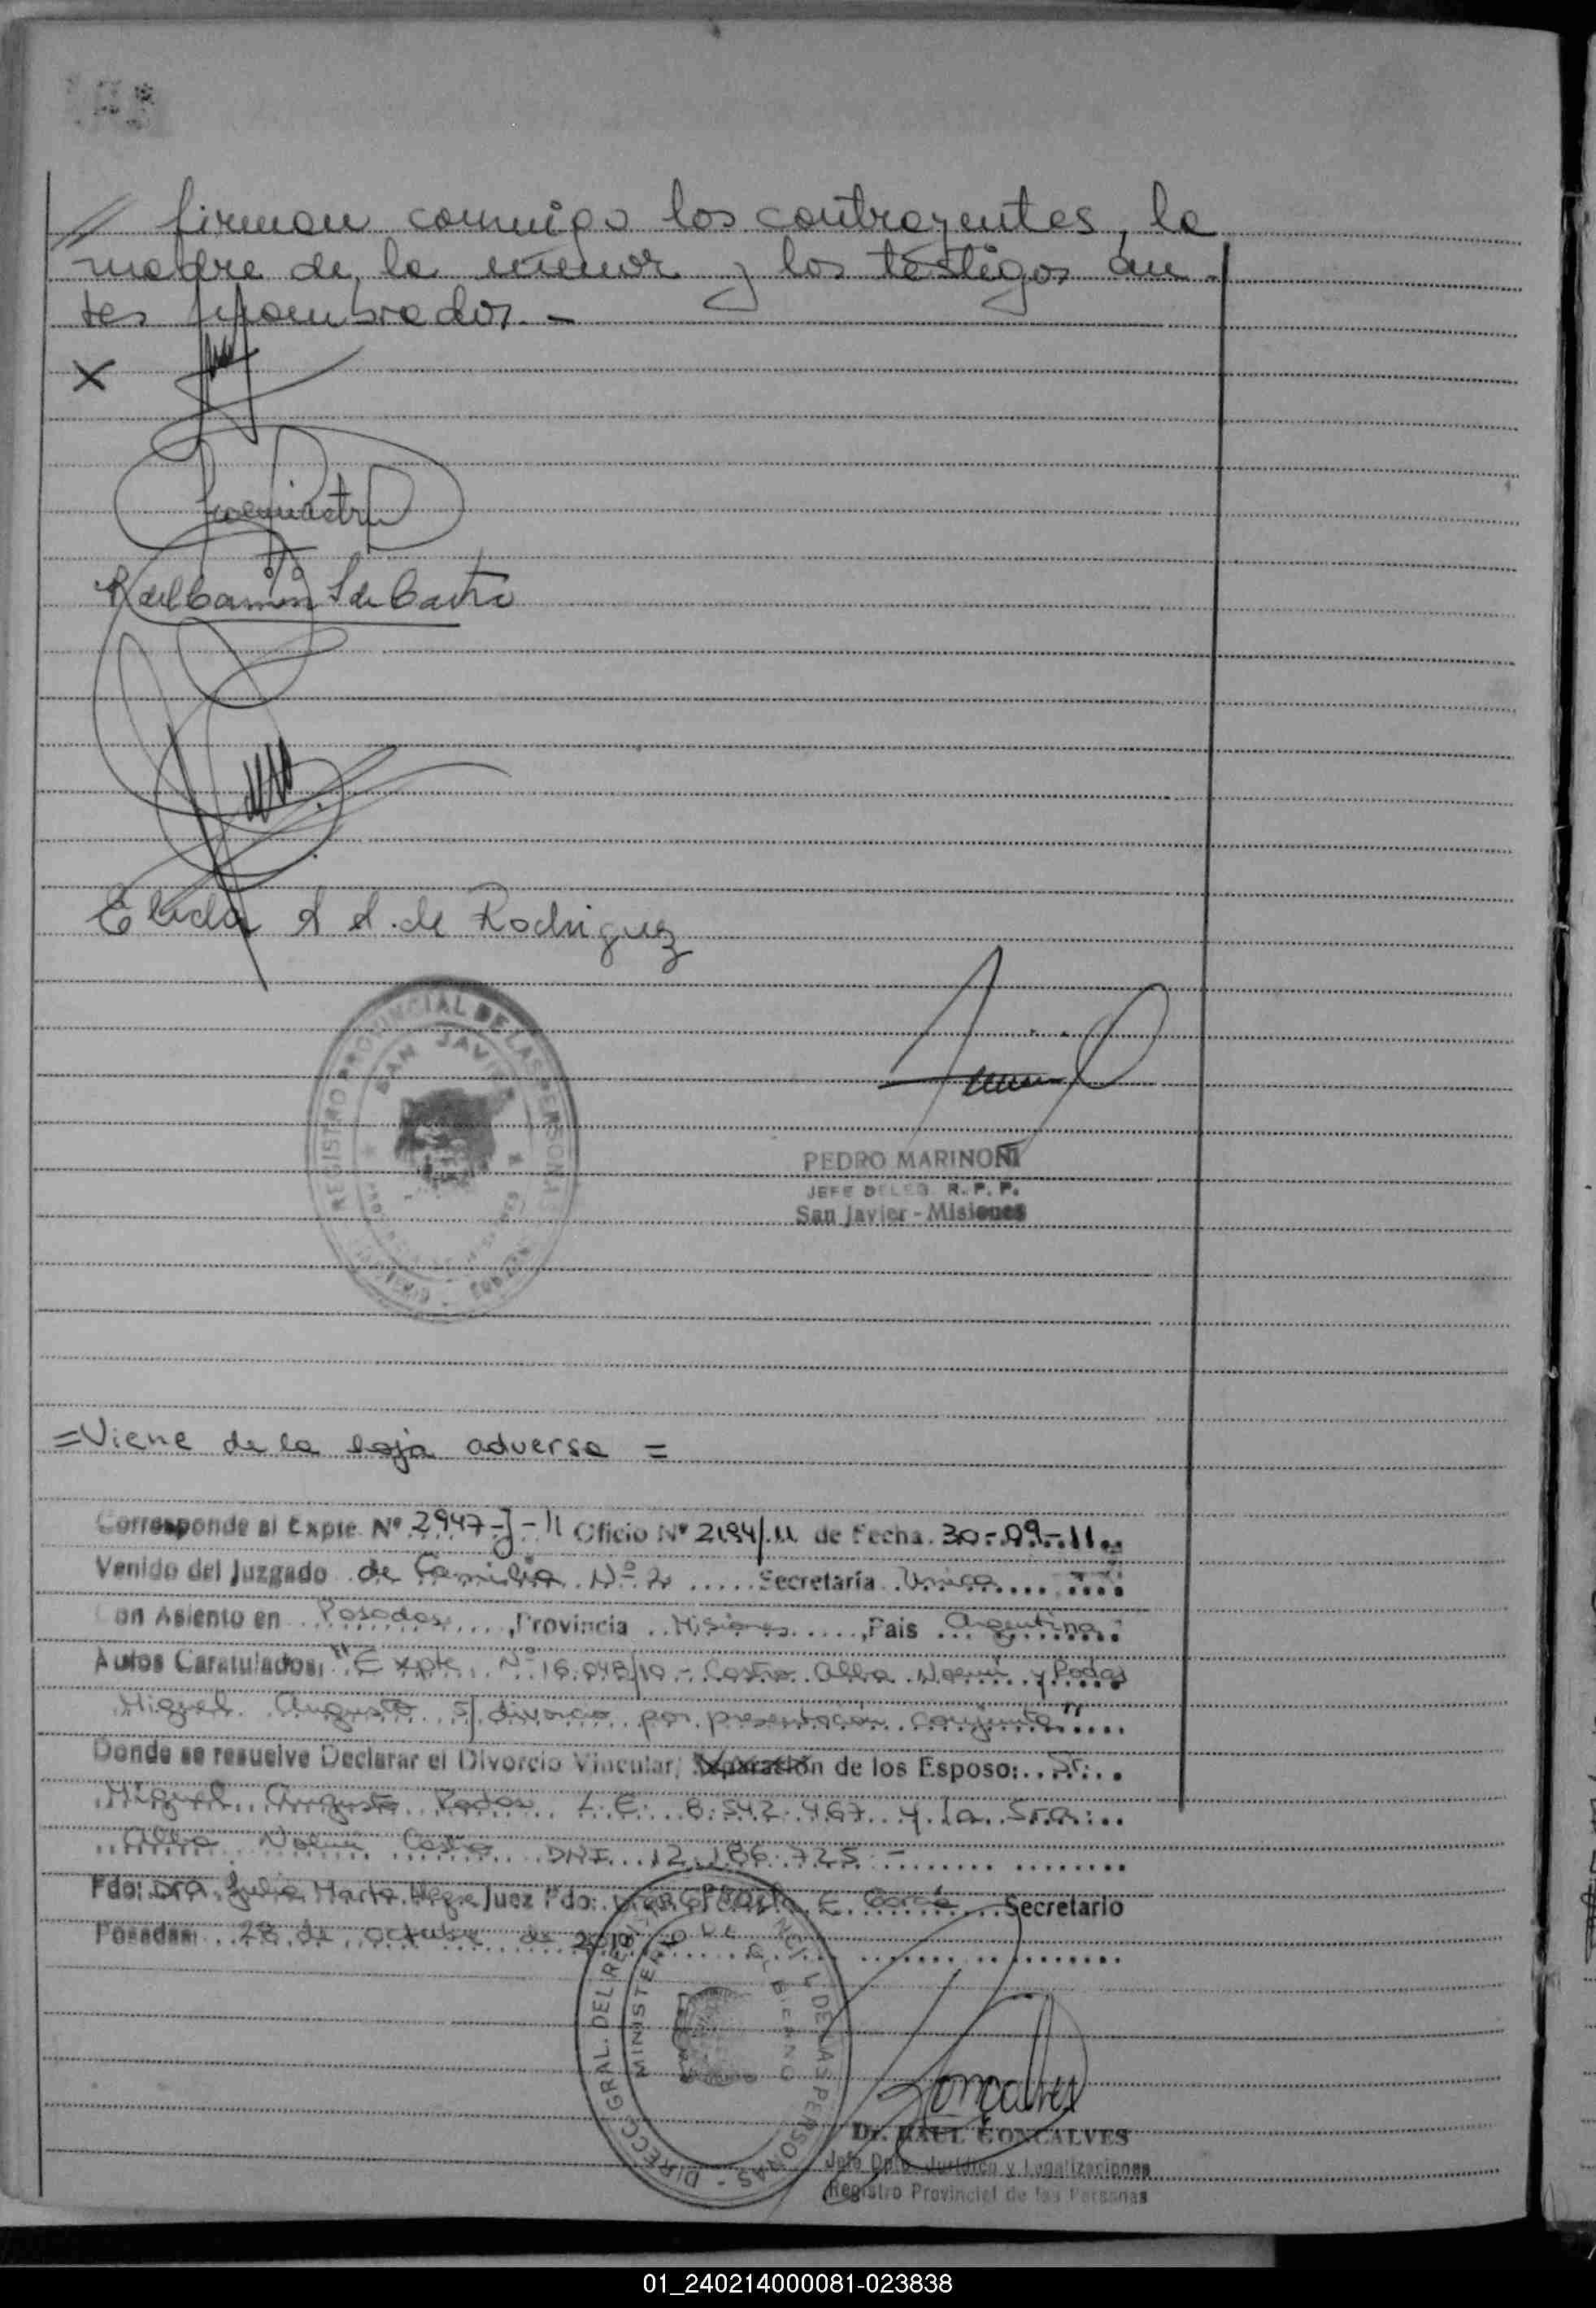 // firman conmigo los contrayentes, la
madre de la menor y los testigos an-
tes nombrados.-
X
R del Carmen S de Castro
Elida A A. de Rodriguez
REGISTRO PROVINCIAL DE LAS PERSONAS
SAN JAVIER
PEDRO MARINONI
JEFE DELEG. R. P. P.
San Javier - Misiones
= Viene de la hoja adversa =
Corresponde al Expte. Nº 2947-J-11 Oficio Nº 2194/11 de Fecha 30-09-11
Venido del Juzgado de Familia Nº 2 Secretaría Única
Con Asiento en Posadas, Provincia Misiones, Pais Argentina
Autos Caratulados: "Expte. Nº 16.048/10 - Castro Alba Noemí y
Miguel Augusto s/ divorcio por presentación conjunta"
Donde se resuelve Declarar el Divorcio Vincular, Separación de los Esposo: Sr.
Miguel Augusto L.E. 8.542.467 y la Sra.
Alba Noemí Castro DNI 12.186.725 -
Fdo: Dra. Julia Marta Juez Fdo: E. García Secretario
Posadas: 28 de octubre de
DIRECC. GRAL. DEL REG. PROVINCIAL DE LAS PERSONAS
MINISTERIO DE GOBIERNO
Goncalves
Dr. RAUL GONCALVES
Jefe Dpto. Jurídico y Legalizaciones
Registro Provincial de las Personas
01_240214000081-023838